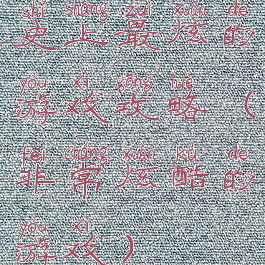 shǐ shàng zuì xuàn de
史上最炫的
yóu xì gōng lüè
游戏攻略（
fēi cháng xuàn kù de
非常炫酷的
yóu xì
游戏）